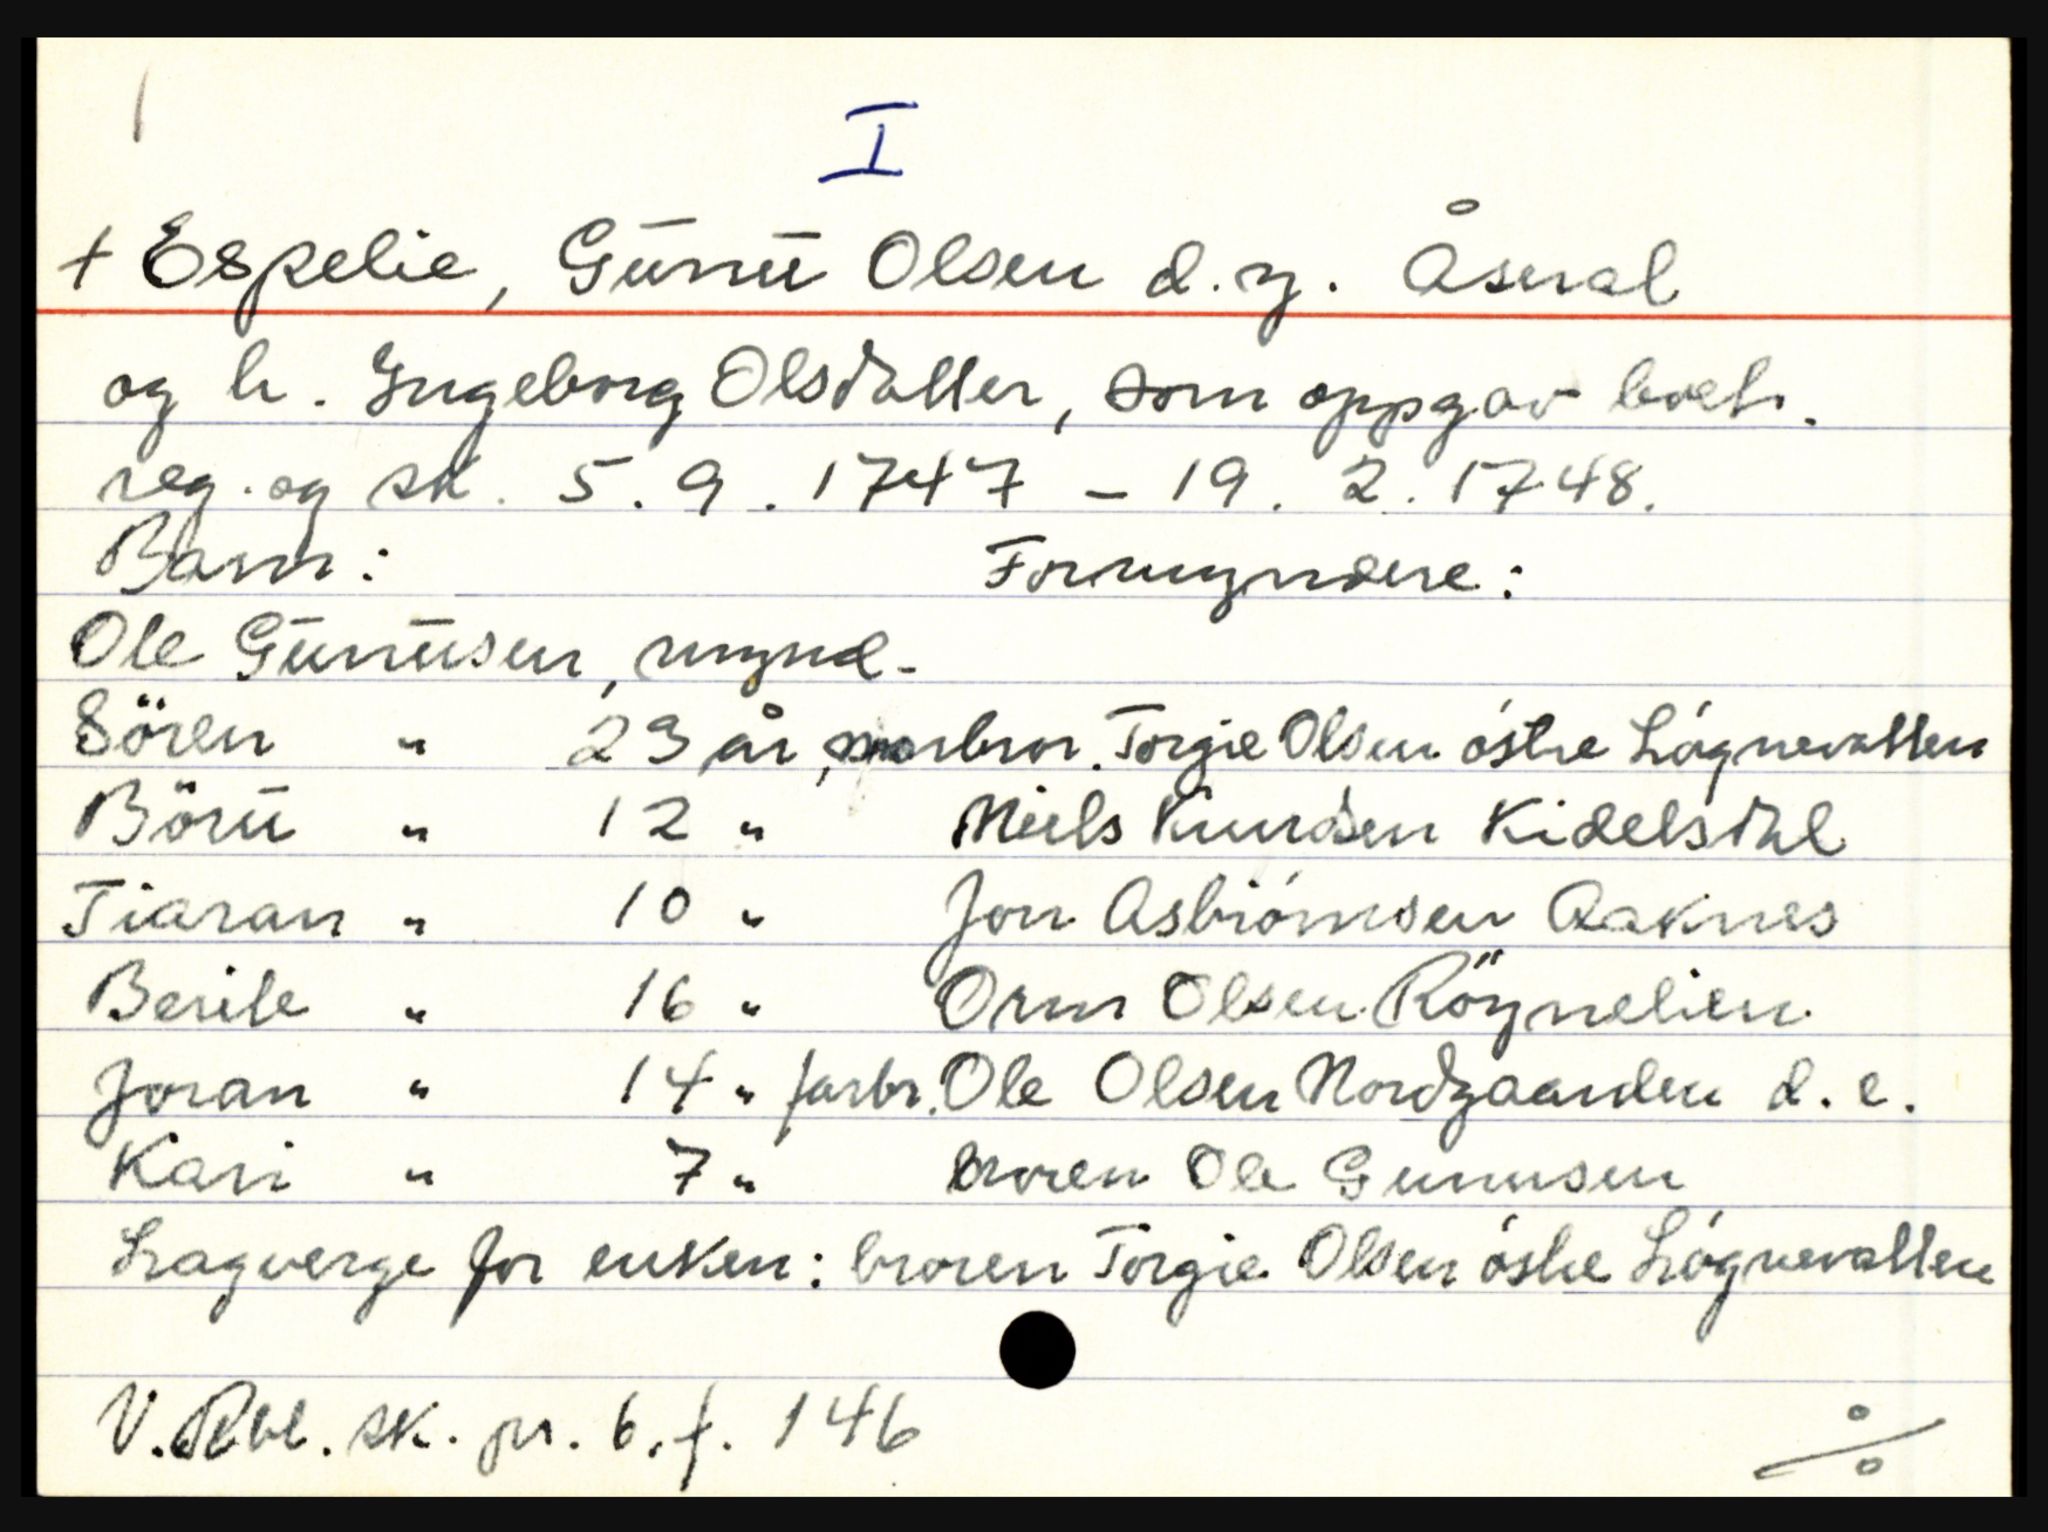 I
+ Espelie, Gūnū Olsen d.y. Åseral
og h. Ingeborg Olsdatter, som oppgav boet.
reg. og sk. 5.9.1747 – 19.2.1748.
Barn: Formyndere:
Ole Gūnūsen, mynd.
Sören " 23 år, morbror. Torgie Olsen óstre Lógnevatten
Börū " 12 " Niels Knudsen Kidelsdal
Tiaran " 10 " Jon Asbiórnsen Aaknes
Berile " 16 " Orm Olsen Röynelien
Joran " 14 " farbr. Ole Olsen Nordgaarden d.e.
Kari " 7 " broren Ole Gunusen
Lagverge for enken: broren Torgie Olsen óstre Lógnevatten
V. Rbl. sk. pr. 6. f. 146
%